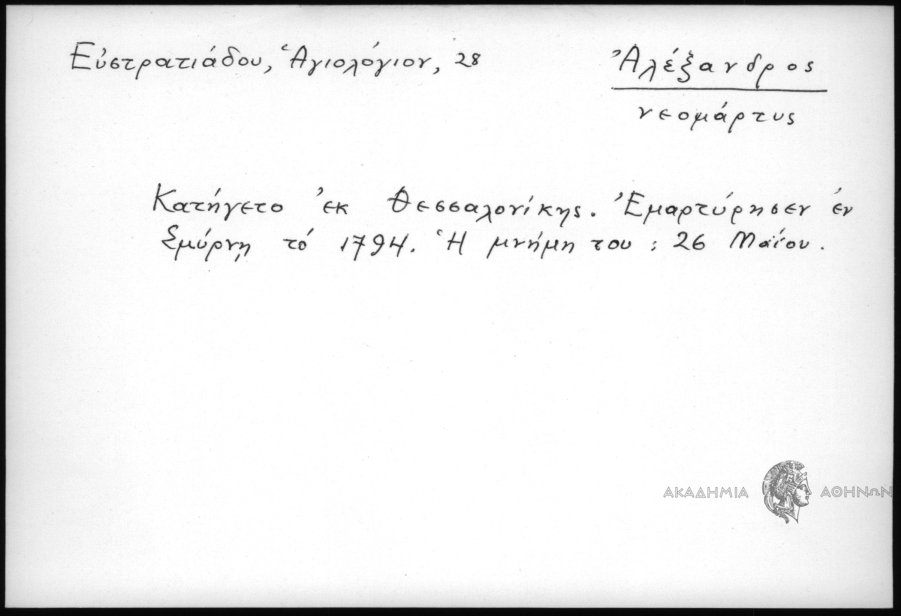 Εὐστρατιάδου, Ἁγιολόγιον, 28
Ἀλέξανδρος
νεομάρτυς
Κατήγετο ἐκ Θεσσαλονίκης. Ἐμαρτύρησεν ἐν
Σμύρνῃ τό 1794. Ἡ μνήμη του : 26 Μαΐου.
ΑΚΑΔΗΜΙΑ ΑΘΗΝΩΝ